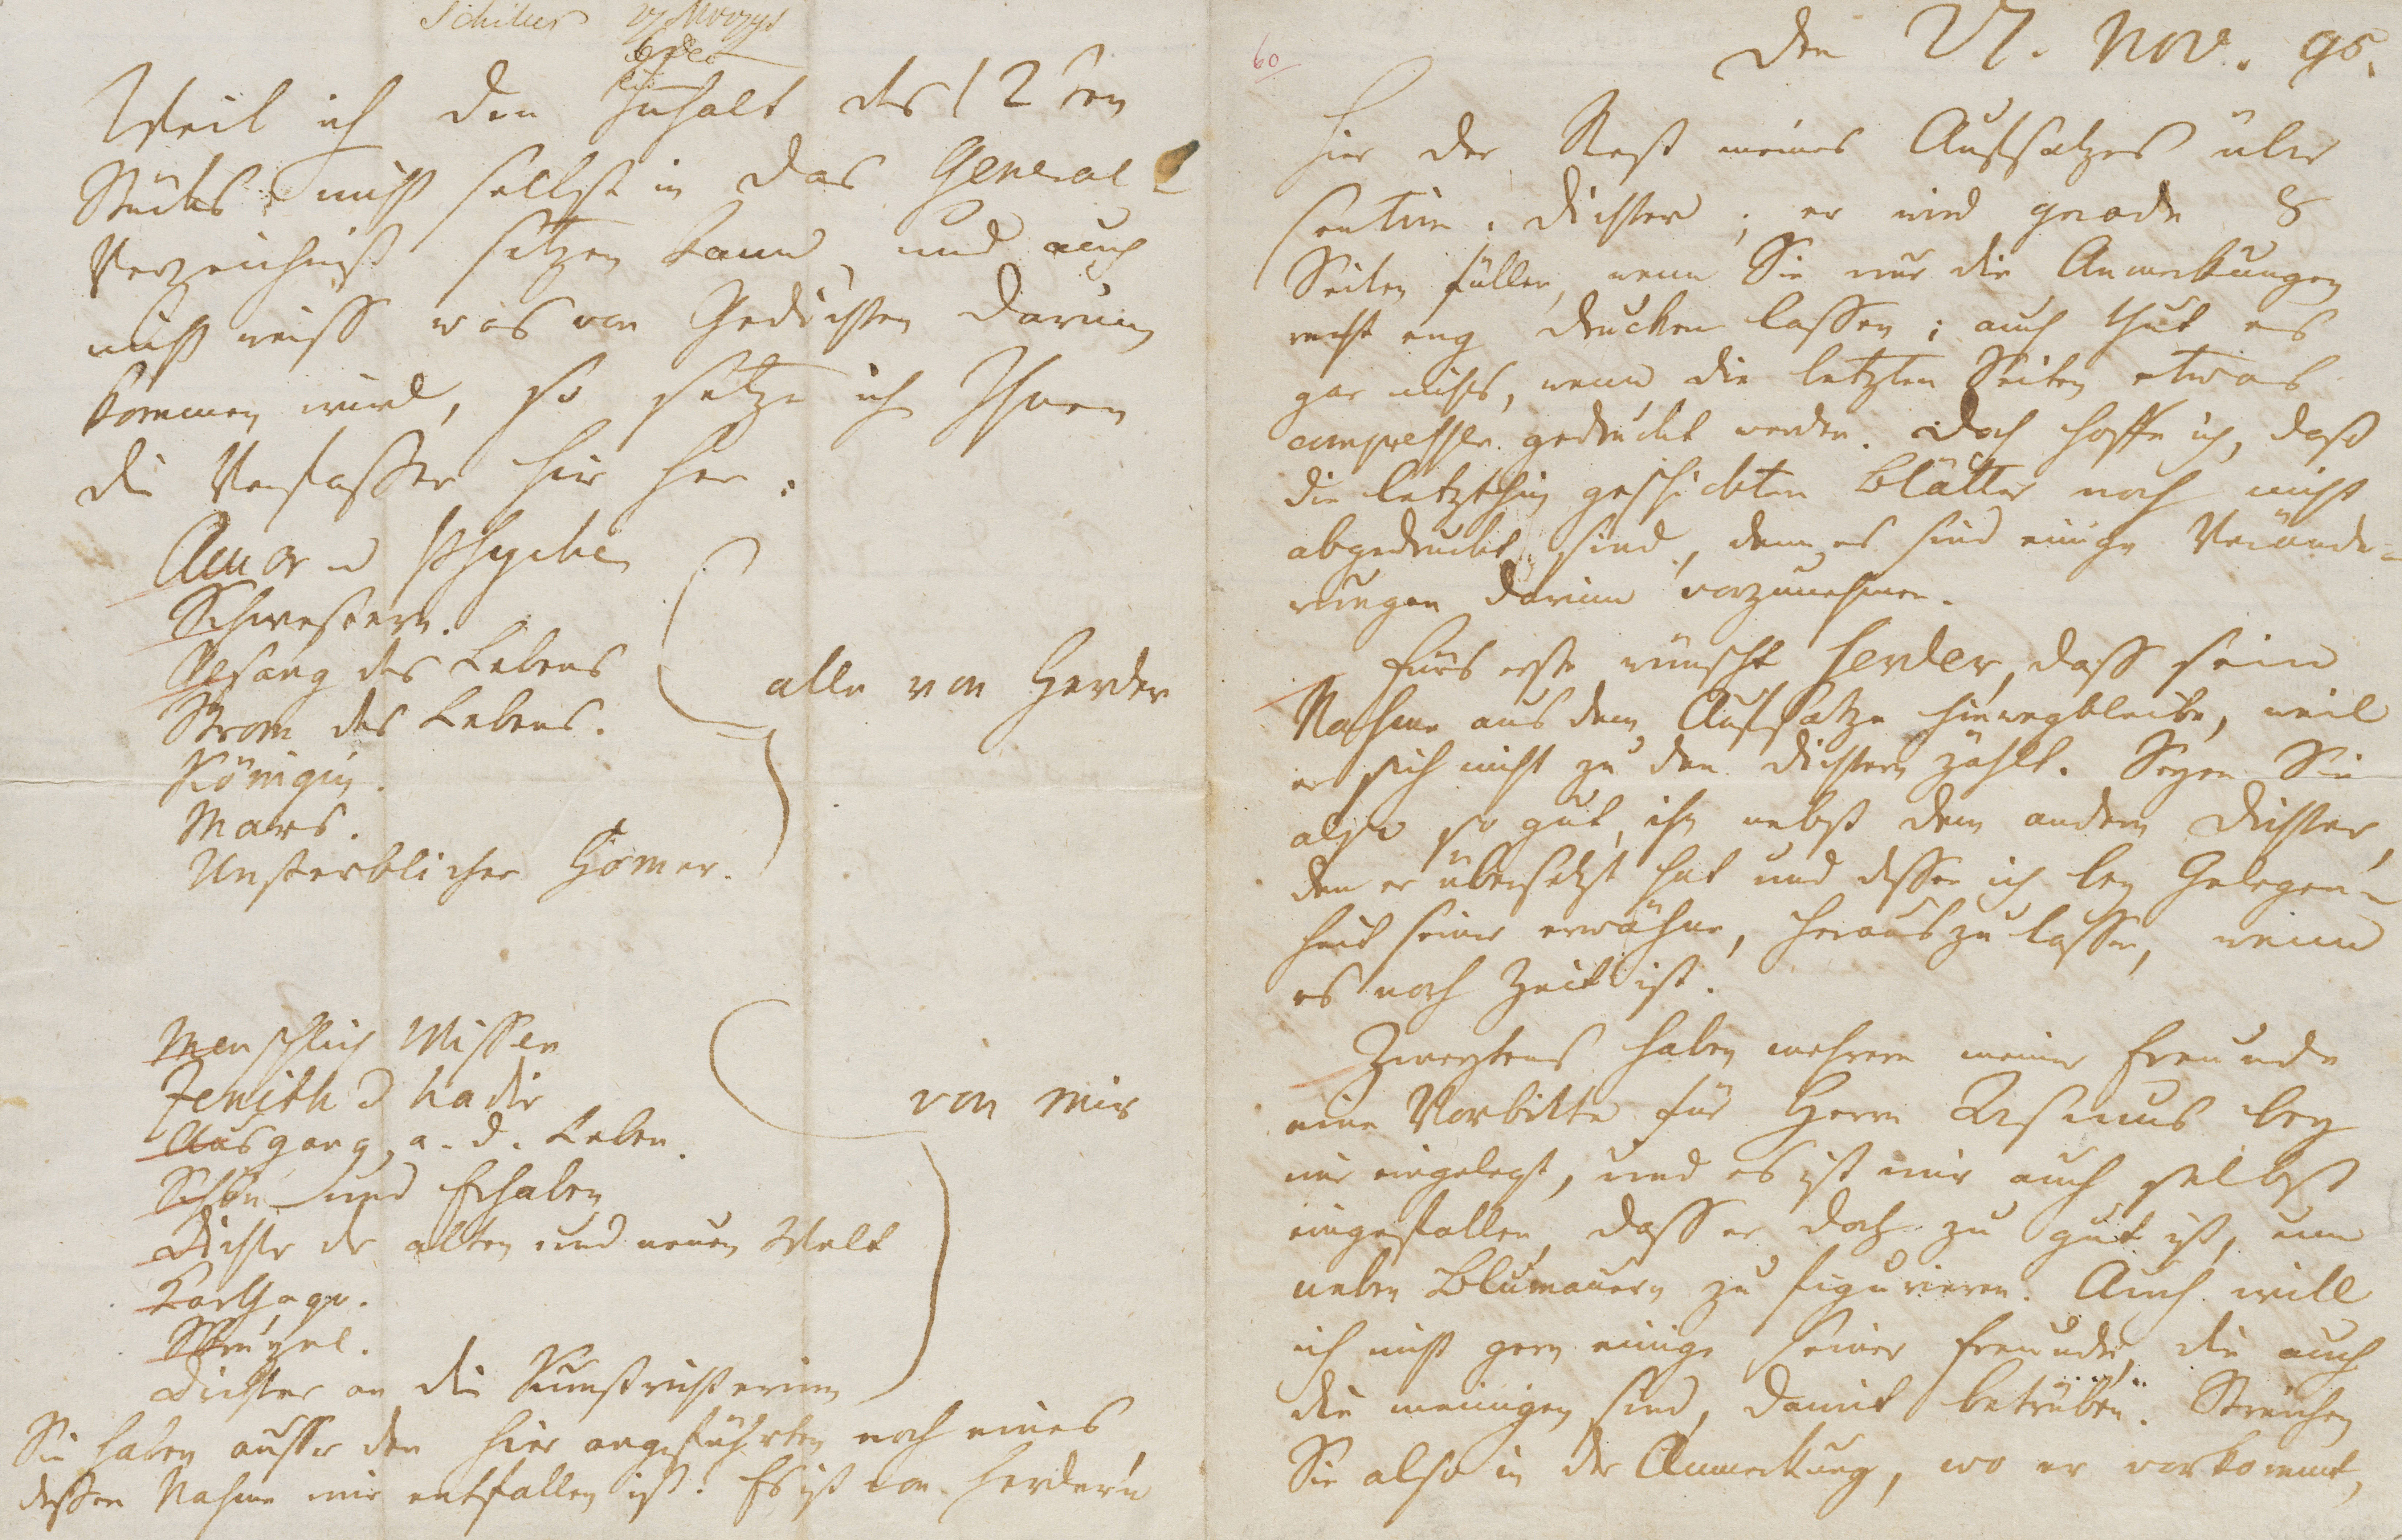 Schiller 27 Nov 95
6 Dec
Weil ich den Innhalt des 12ten
Stücks nicht selbst in das General
Verzeichniß setzen kann, und auch
nicht weiss was von Gedichten darinn
kommen wird, so setze ich Ihnen
die Verfasser hier her:
Amor u Psyche
Schwestern.
Gesang des Lebens
Strom des Lebens.
alle von Herder
Königin.
Mars.
Unsterblicher Homer.
Menschlich Wissen
Zenith u Nadir
von mir
Ausgang a. d. Leben.
Schön und Erhaben
Dichter der alten und neuen Welt
Karthago.
Dichter an die Kunstrichterinn
Sie haben ausser den hier angeführten noch eines
dessen Nahme mir entfallen ist. Es ist von Herdern
60
Den 27. Nov. 95.
Hier der Rest meines Aufsatzes über
sentim. Dichter; er wird gerade 8
Seiten füllen, wenn Sie nur die Anmerkungen
recht eng drucken lassen; auch thut es
gar nichts, wenn die letzten Seiten etwas
compresser gedruckt werden. Doch hoffe ich, daß
die letzthin geschickten Blätter noch nicht
abgedruckt sind, denn es sind einige Verände-
rungen darinn vorzunehmen.
Fürs erste wünscht Herder, dass sein
Nahme aus dem Aufsatze hinwegbleibe, weil
er sich nicht zu den Dichtern zählt. Seyen Sie
also so gut, ihn nebst dem andern Dichter,
den er übersetzt hat und dessen ich bey Gelegen-
heit seiner erwähne, herauszulassen, wenn
es noch Zeit ist.
Zweytens haben mehrere meiner Freunde
eine Vorbitte für Herrn Asmus bey
mir eingelegt, und es ist mir auch selbst
eingefallen, dass er doch zu gut ist, um
neben Blumauern zu figurieren. Auch will
ich nicht gern einige seiner Freunde, die auch
die meinigen sind, damit betrüben. Streichen
Sie also in der Anmerkung, wo er vorkommt,